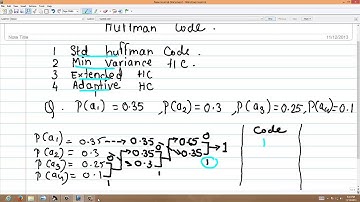 Huffman Code.
Note Title
11/12/2013
1 Std huffman Code.
2 Min Variance H C.
3 Extended HC
4 Adaptive HC
Q. P(a1) = 0.35 P(a2) = 0.3 , P(a3) = 0.25, P(a4) = 0.1
P(a1) = 0.35 ---> 0.35 0.65 0 1
P(a2) = 0.3 0.35 0 0.35 1
P(a3) = 0.25 0 0.3 1
P(a4) = 0.1 1
Code
1